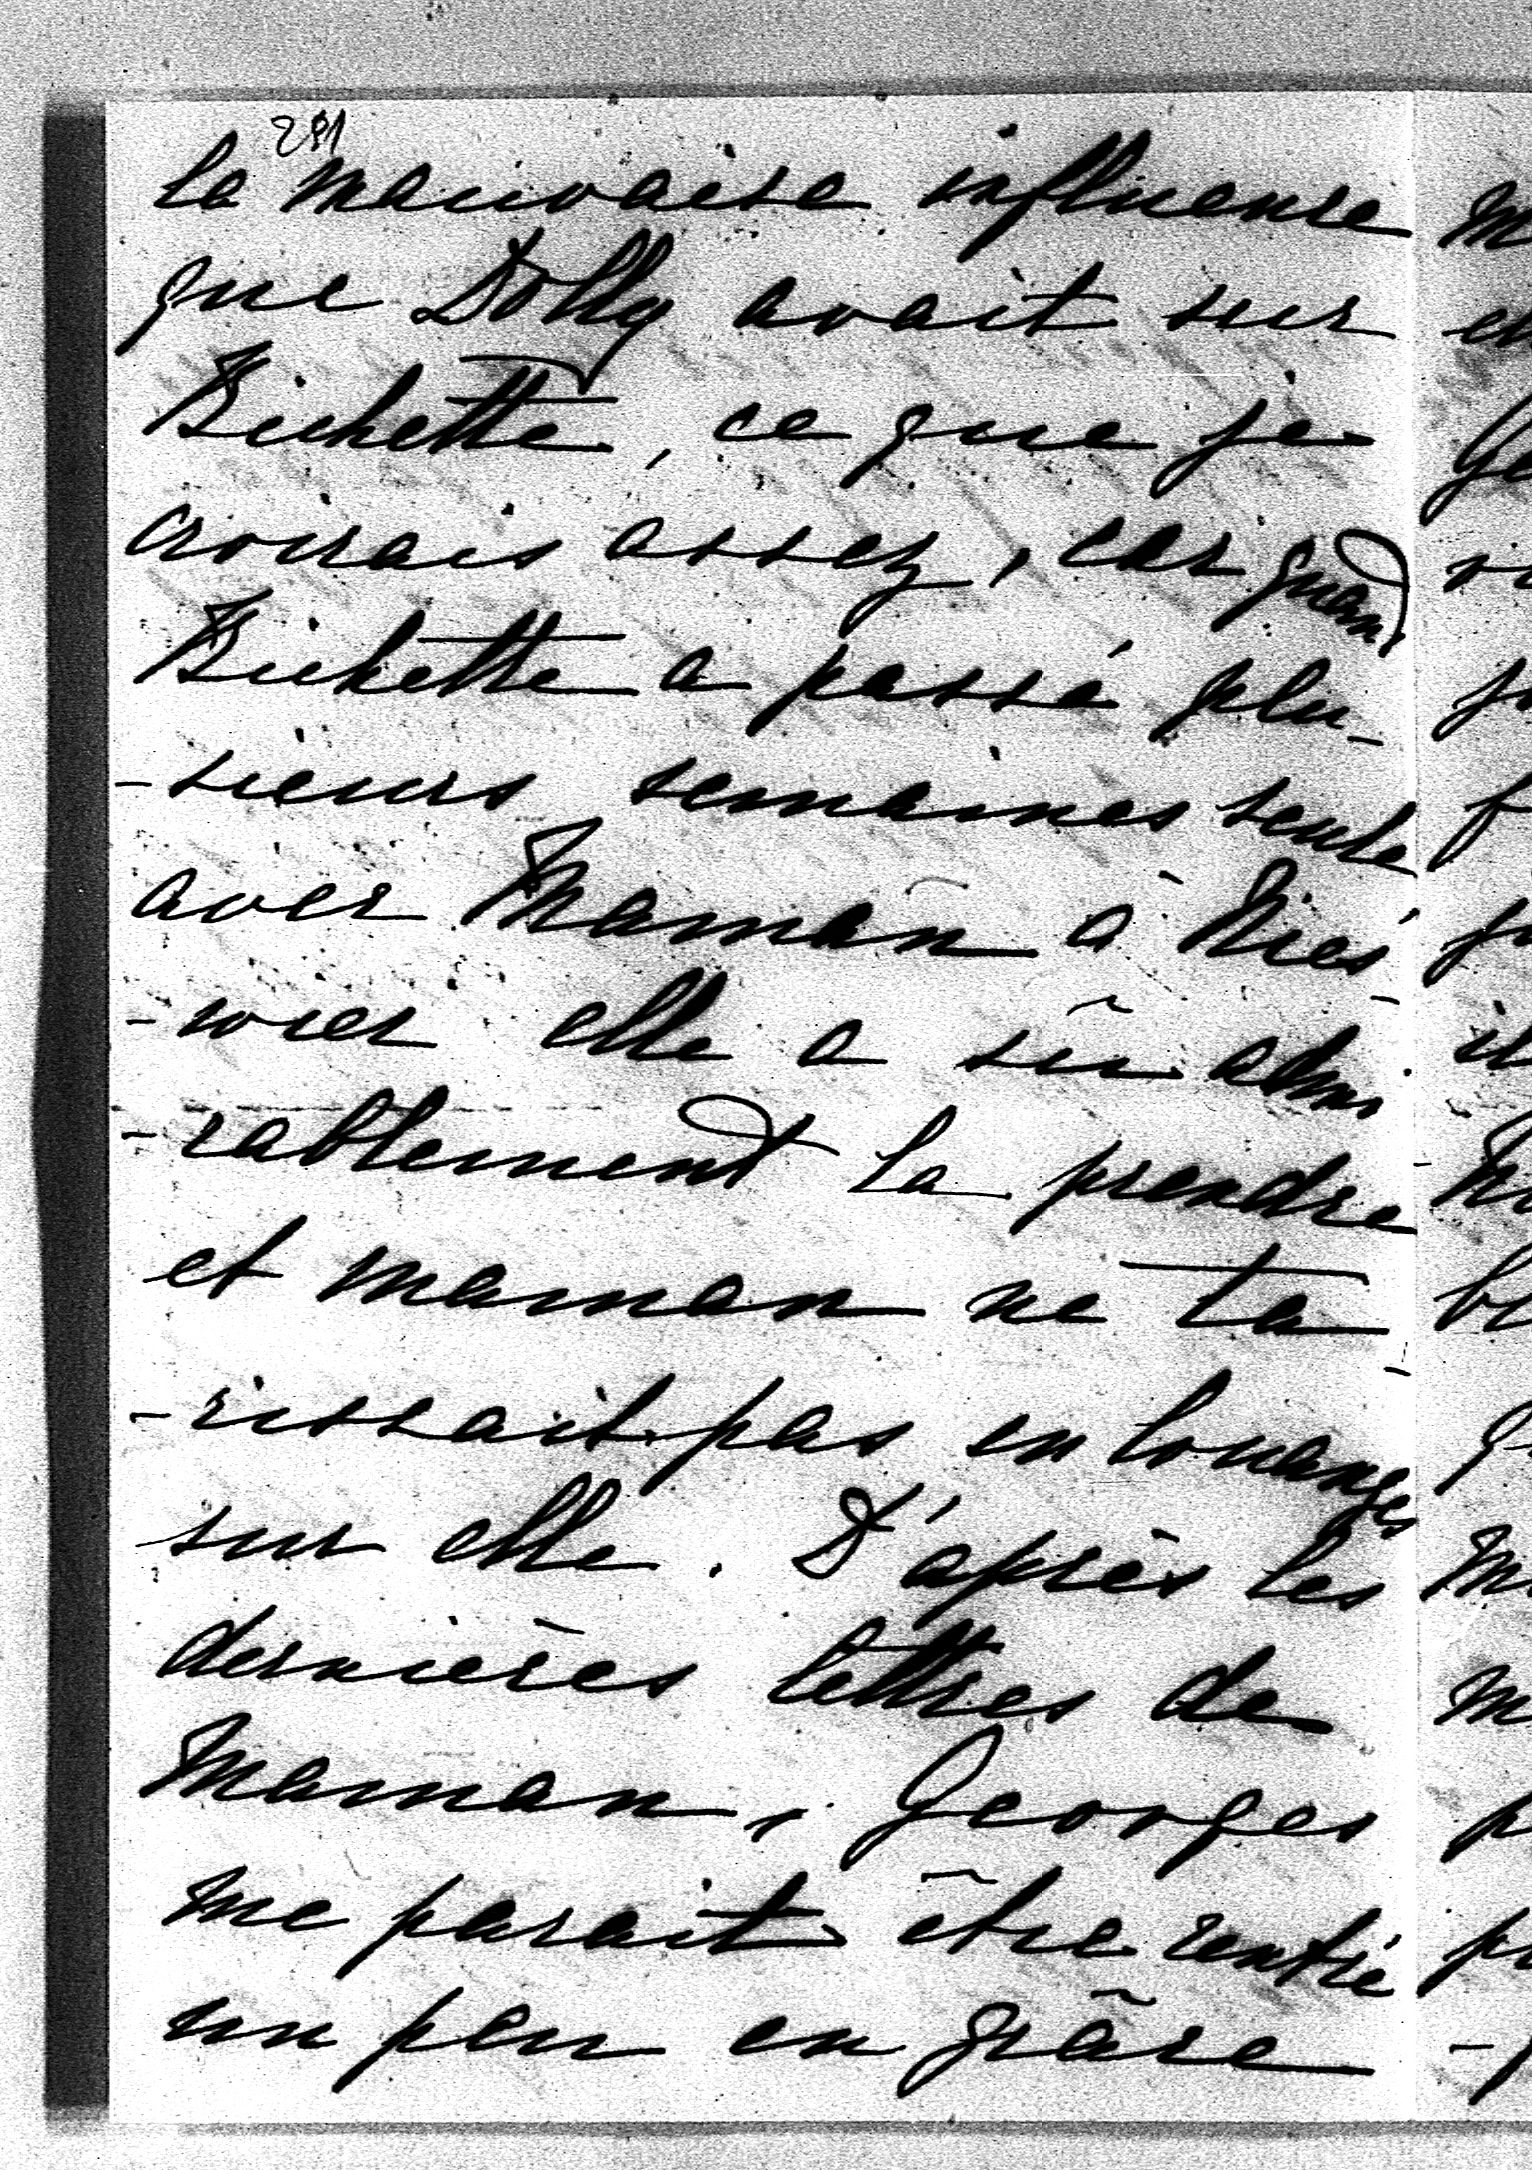 281
la mauvaise influence
que Dolly avait sur
Bichette, ce que je
croirais assez, car quand
Bichette a passé plu-
-sieurs semaines seule
avec Maman à
elle a sû admi
-rablement la prendre
et maman ne ta
-rissait pas en louanges
sur elle. D'après les
dernières lettres de
Maman, Georges
me parait être rentré
un peu en grâce